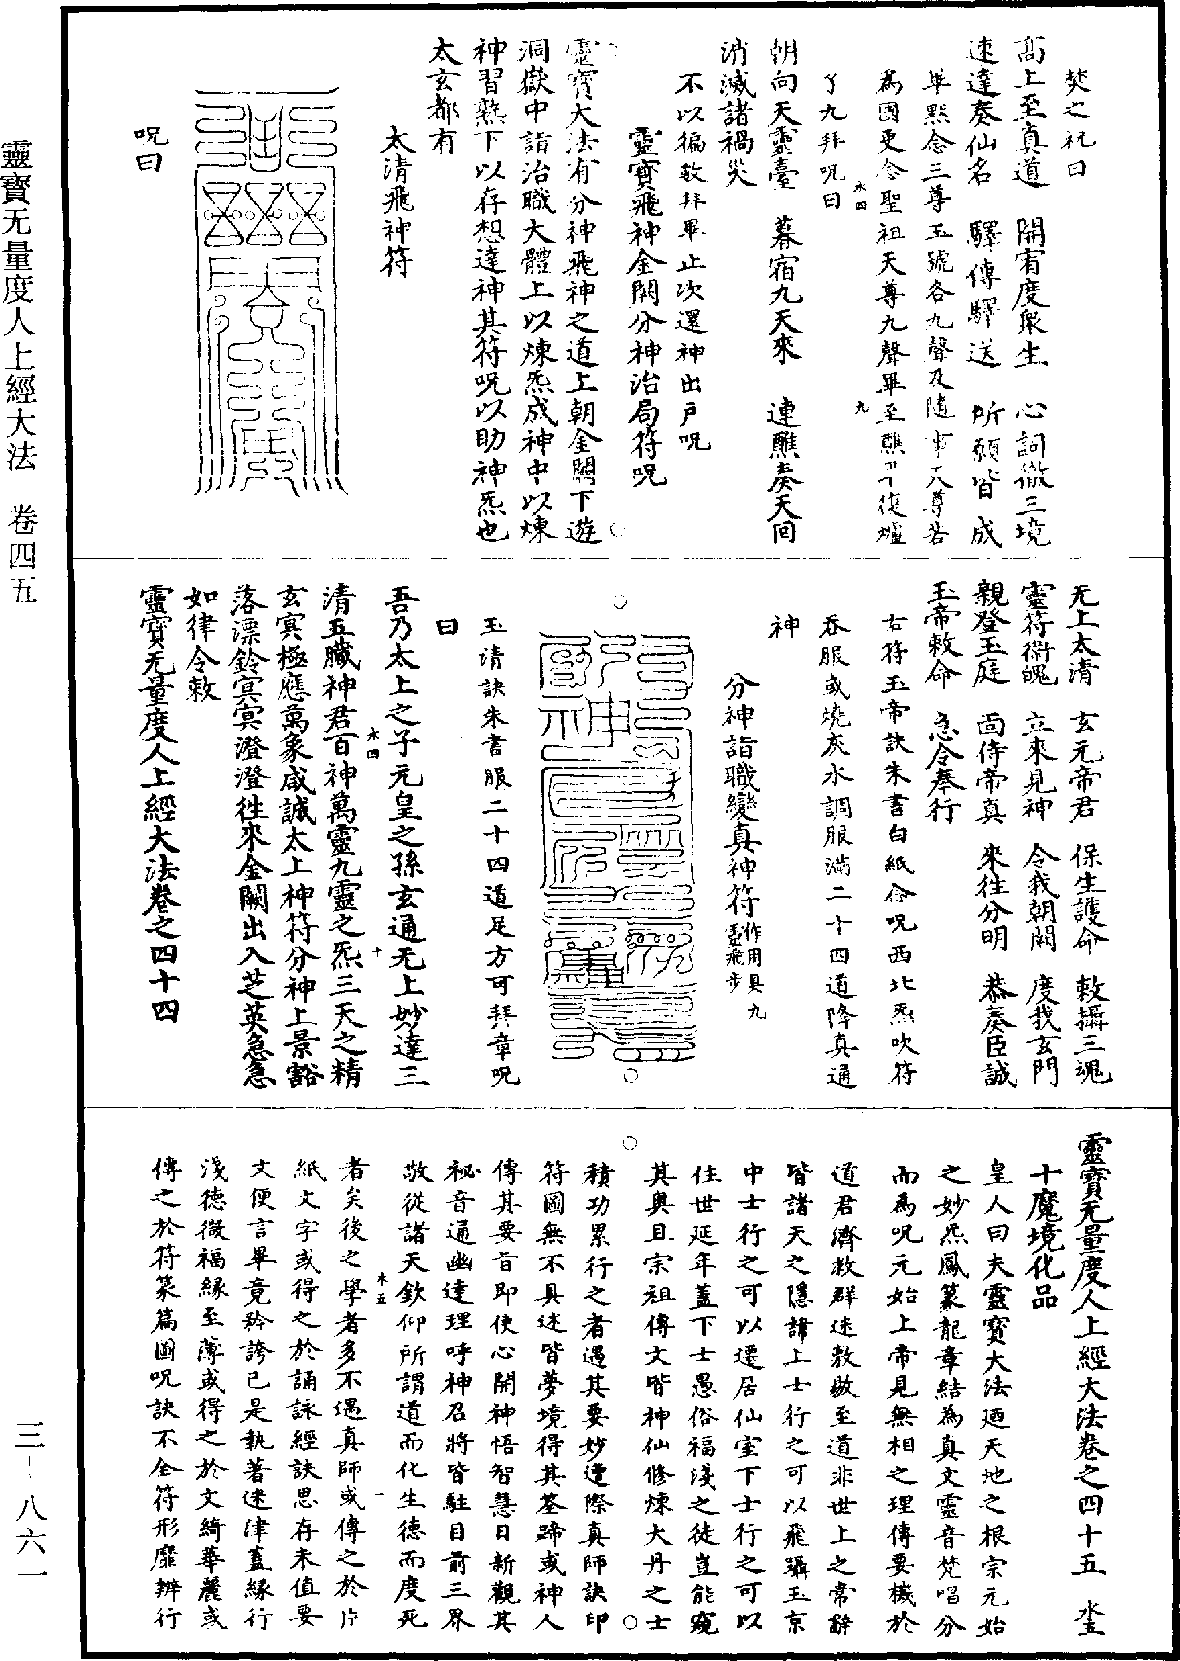 焚之祝曰
高上至真道　開宥度眾生　心詞徹三境
速達奏仙名　驛傳驛送　所願皆成
畢默念三尊玉號各九聲及隨事天尊若
為國更念聖祖天尊九聲畢至醮罷復爐
了九拜呪曰
朝向天靈臺　暮宿九天來　連醮奏天回
消滅諸禍災
不以徧數拜畢止次還神出戶呪
靈寶飛神金闕分神治局符呪
靈寶大法有分神飛神之道上朝金闕下遊
洞嶽中詣治職大體上以煉炁成神中以煉
神習熟下以存想達神其符呪以助神炁也
太玄都有
太清飛神符
呪曰
无上太清　玄元帝君　保生護命　敕攝三魂
靈符衛魄　立來見神　令我朝闕　度我玄門
親登玉庭　面侍帝真　來往分明　恭奏臣誠
玉帝敕命　急令奉行
右符玉帝訣朱書白紙念呪西北炁吹符
吞服或燒灰水調服滿二十四道降真通
神
分神詣職變真神符作用具九靈飛步
玉清訣朱書服二十四道足方可拜章呪
曰
吾乃太上之子元皇之孫玄通无上妙達三
清五臟神君百神萬靈九靈之炁三天之精
玄冥極應萬象咸誠太上神符分神上景豁
落漂鈴冥冥澄澄徃來金闕出入芝英急急
如律令敕
靈寶无量度人上經大法卷之四十四
靈寶无量度人上經大法卷之四十五　水五
十魔境化品
皇人曰夫靈寶大法迺天地之根宗元始
之妙炁鳳篆龍章結為真文靈音梵唱分
而為呪元始上帝見無相之理傳要機於
道君濟救群迷敷敭至道非世上之常辭
皆諸天之隱諱上士行之可以飛躡玉京
中士行之可以遷居仙室下士行之可以
住世延年蓋下士愚俗福淺之徒豈能窺
其奧且宗祖傳文皆神仙修煉大丹之士
積功累行之者遇其要妙遭際真師訣印
符圖無不具述皆夢境得其筌蹄或神人
傳其要旨即使心開神悟智慧日新觀其
祕音通幽達理呼神召將皆駐目前三界
敬從諸天欽仰所謂道而化生德而度死
者矣後之學者多不遇真師或傳之於片
紙文字或得之於誦詠經訣思存未值要
文便言畢竟矜誇已是執著迷津蓋緣行
淺德微福緣至薄或得之於文綺華麗或
傳之於符篆篇圖呪訣不全符形靡辨行
靈寶无量度人上經大法　卷四五
三－八六一